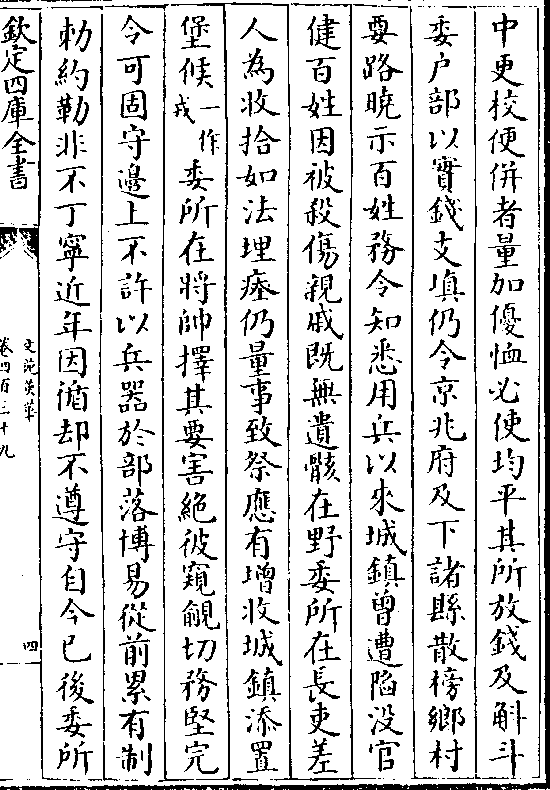 中更校使併者量加優恤必使均平其所放錢及斛斗
委户部以實錢支填仍令京兆府及下諸縣散榜鄉村
要路曉示百姓務令知悉用兵以來城鎮曾遭陷没官
健百姓因被殺傷親戚既無遺骸在野委所在長吏差
人為收拾如法埋瘞仍量事致祭應有增收城鎮添置
堡候一作戎委所在將帥擇其要害絶彼窺覦切務堅完
令可固守邊上不許以兵器於部落博易從前累有制
勅約勒非不丁寧近年因循却不遵守自今已後委所
欽定四庫全書
文苑英華
卷四百二十九
四